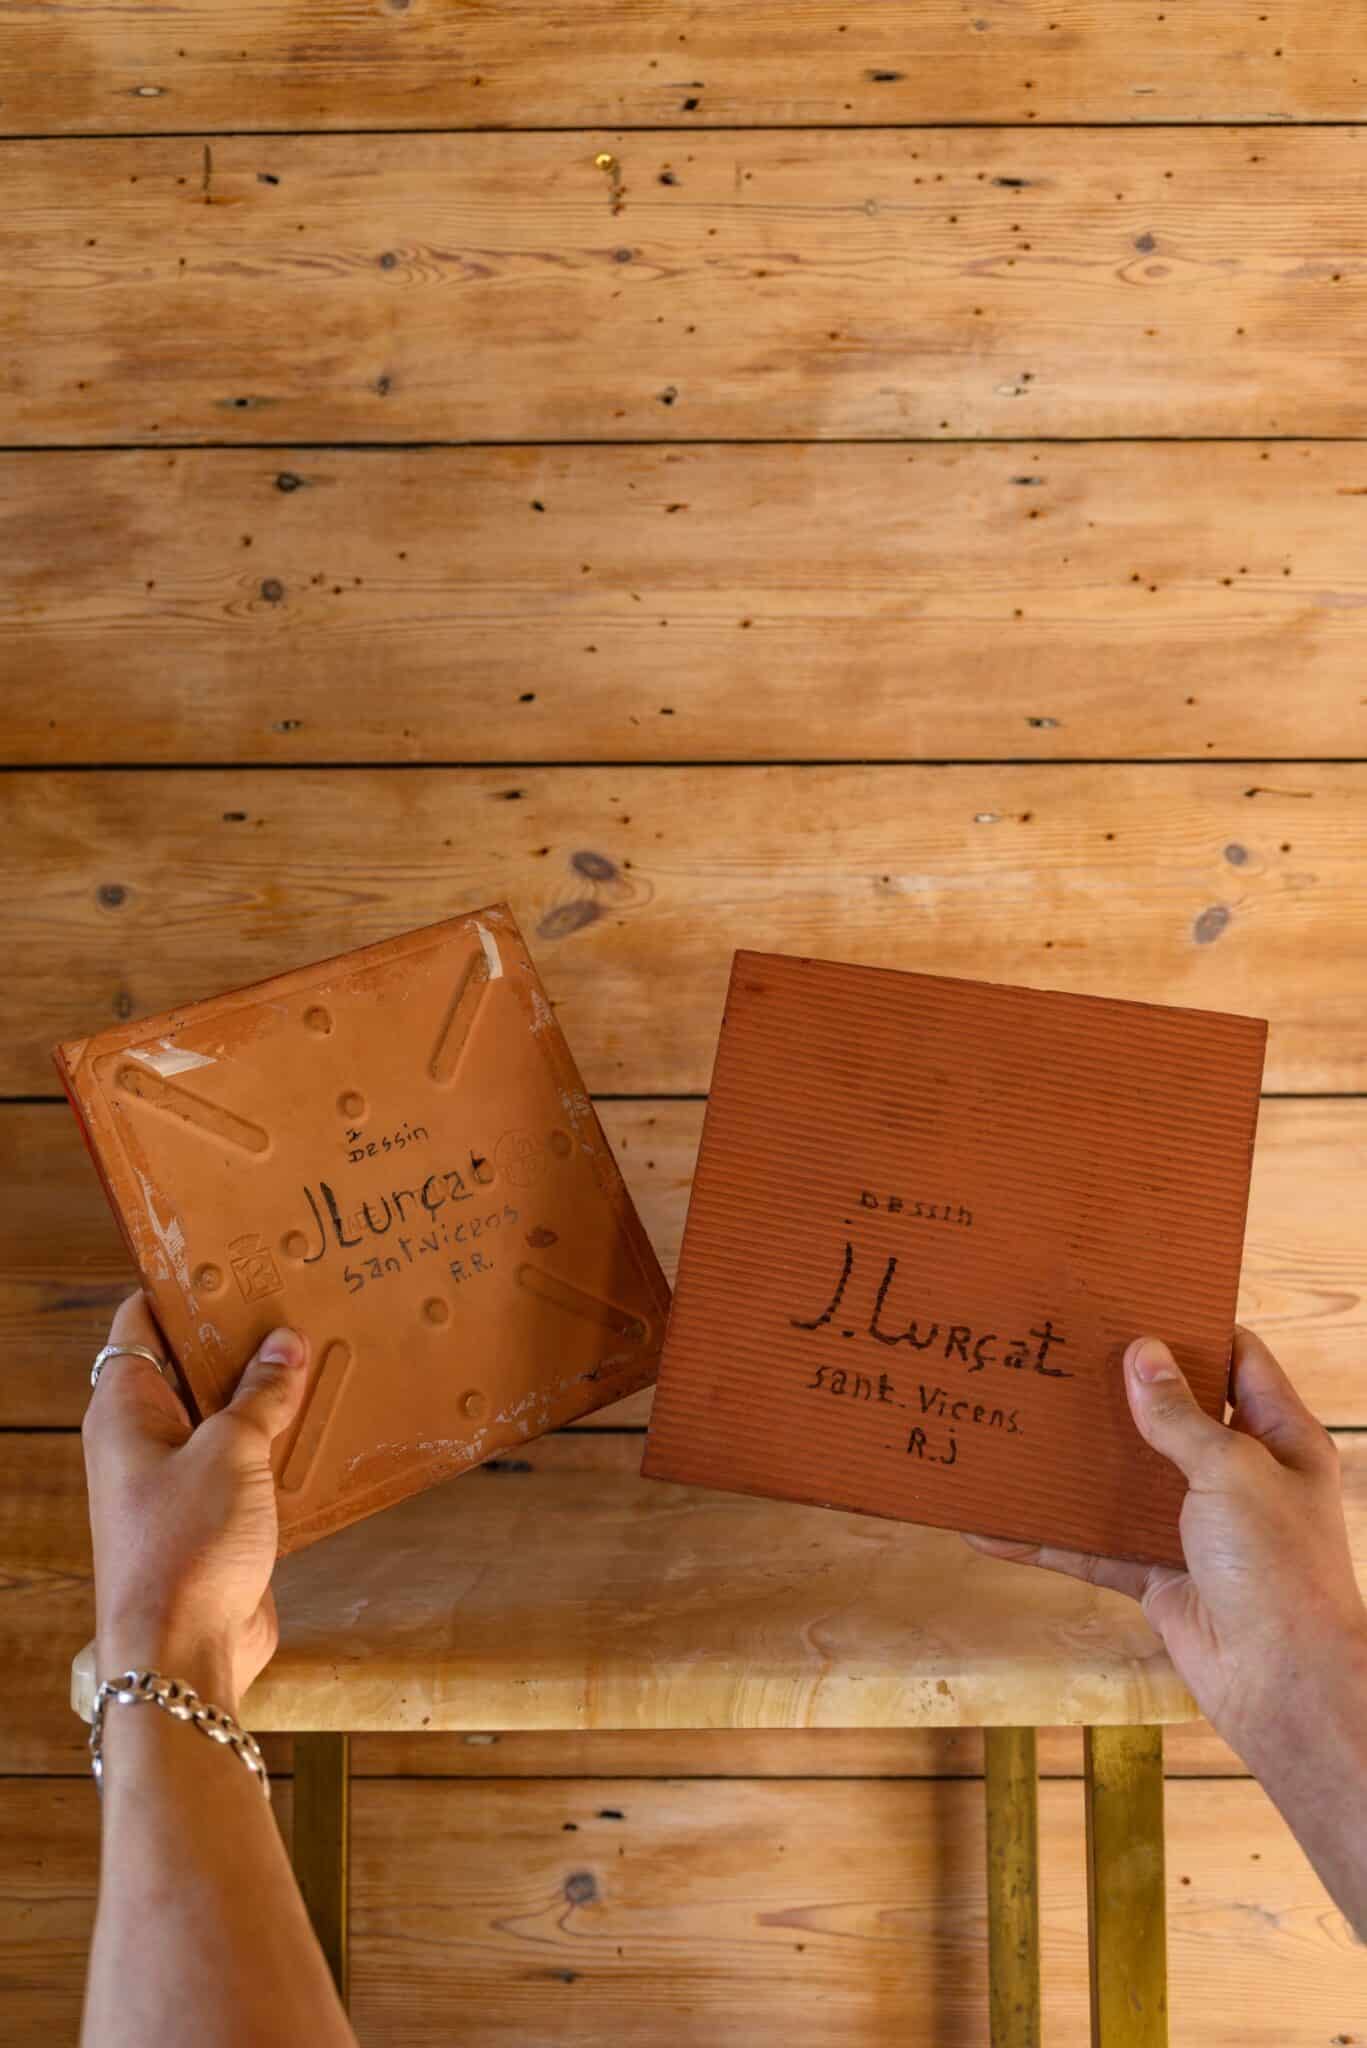 Dessin
J Lurçat
Sant-Vicens
R.R.
Dessin
J. Lurçat
Sant. Vicens.
R.j